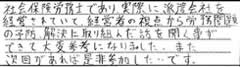 社会保険労務士であり、実際に派遣会社を
経営されていて、経営者の視点から労務問題
の予防、解決に取り組んだ話を聞く事が
できて大変参考になりました。また
次回があれば是非参加したいです。